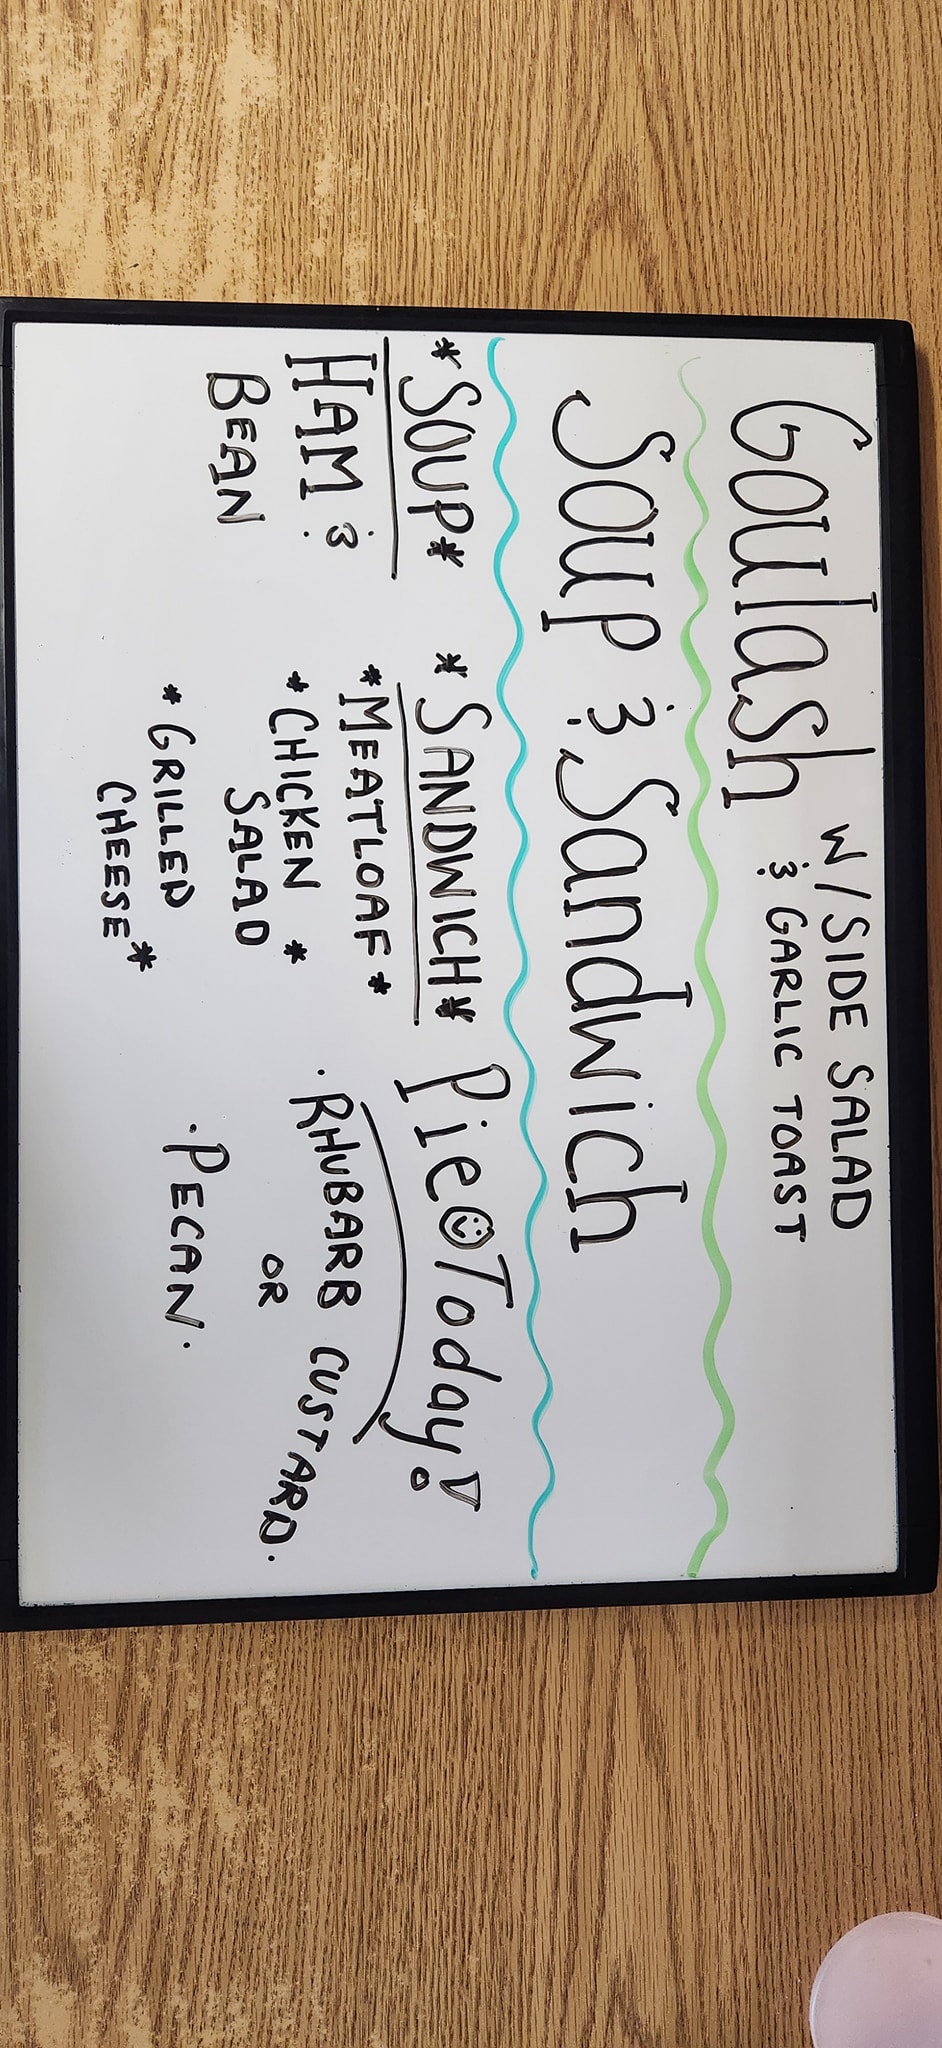 Goulash w/SIDE SALAD
& GARLIC TOAST
Soup & Sandwich
*SOUP*
HAM &
BEAN
*SANDWICH*
*MEATLOAF*
*CHICKEN
SALAD*
*GRILLED
CHEESE*
Pie☺Today!
·RHUBARB CUSTARD.
OR
·PECAN.